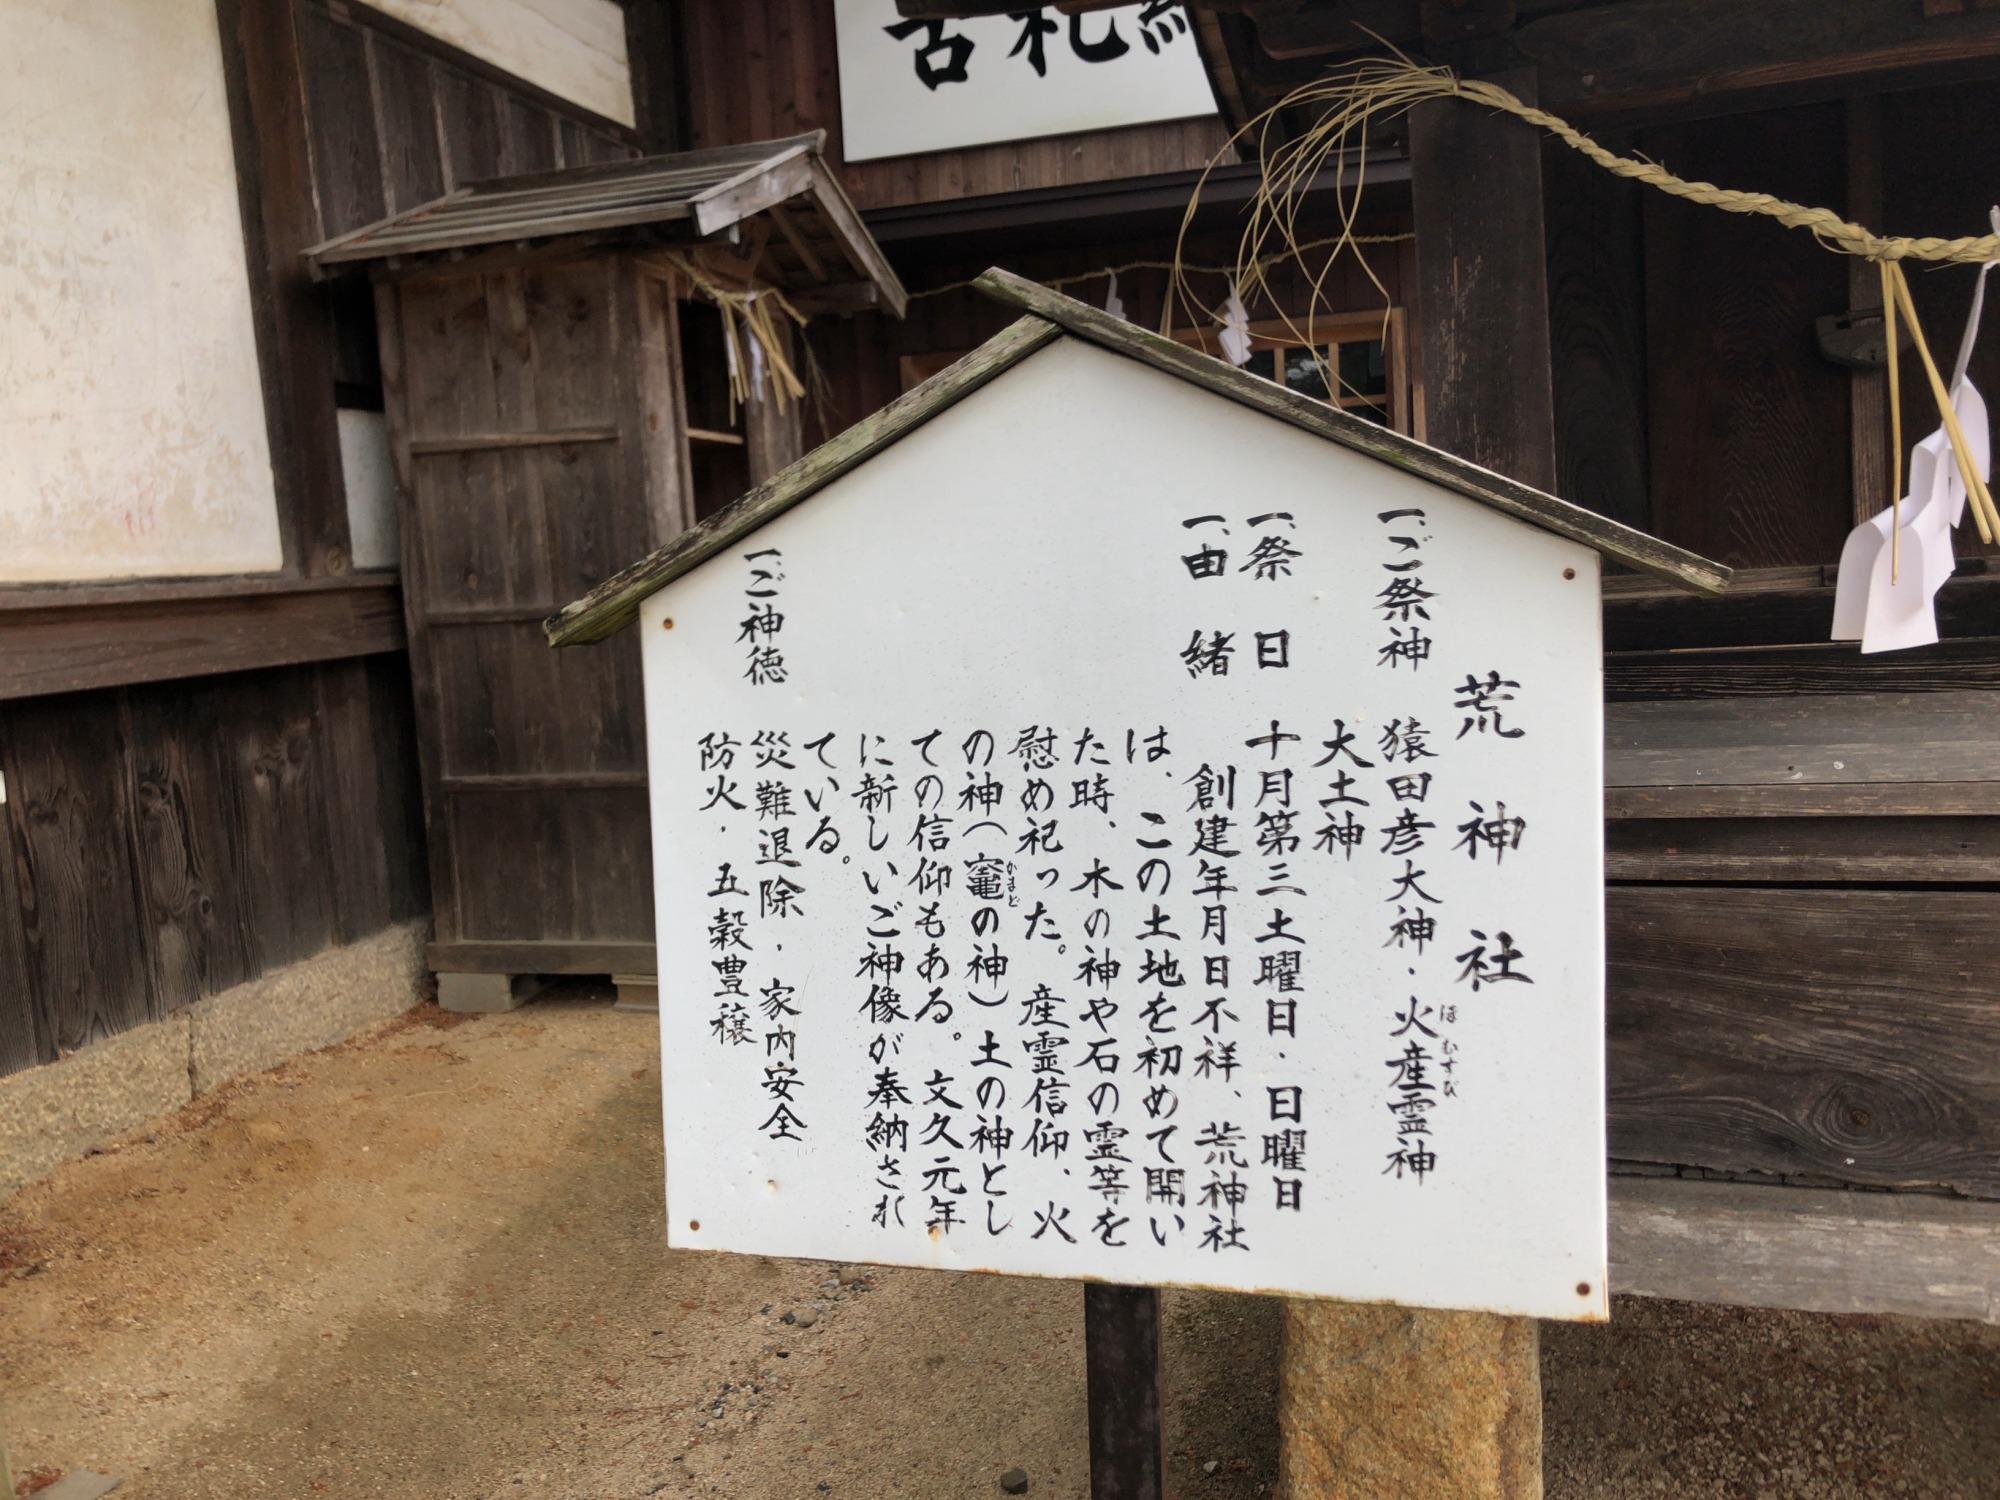 古札納
荒神社
一、ご祭神 猿田彦大神・火産霊神
ほむすび
大土神
一、祭日 十月第三土曜日・日曜日
一、由緒 創建年月日不祥、荒神社
は、この土地を初めて開い
た時、木の神や石の霊等を
慰め祀った。産霊信仰、火
の神(竈の神)土の神とし
かまど
ての信仰もある。文久元年
に新しいご神像が奉納され
ている。
一、ご神徳 災難退除・家内安全
防火・五穀豊穣